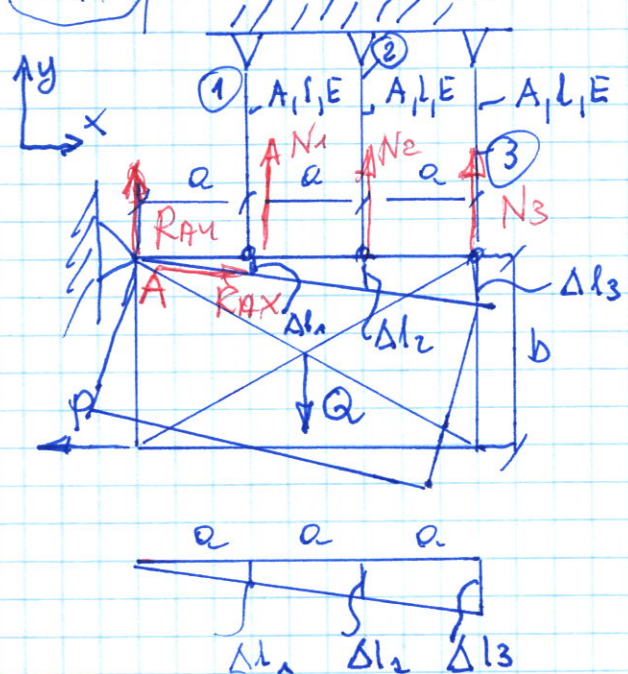 ②
y
①
A,l,E
A,l,E
A,l,E
x
N1
N2
③
a
a
a
N3
RAY
A
RAX
Δl1
Δl2
Δl3
b
P
Q
a
a
a
Δl1
Δl2
Δl3